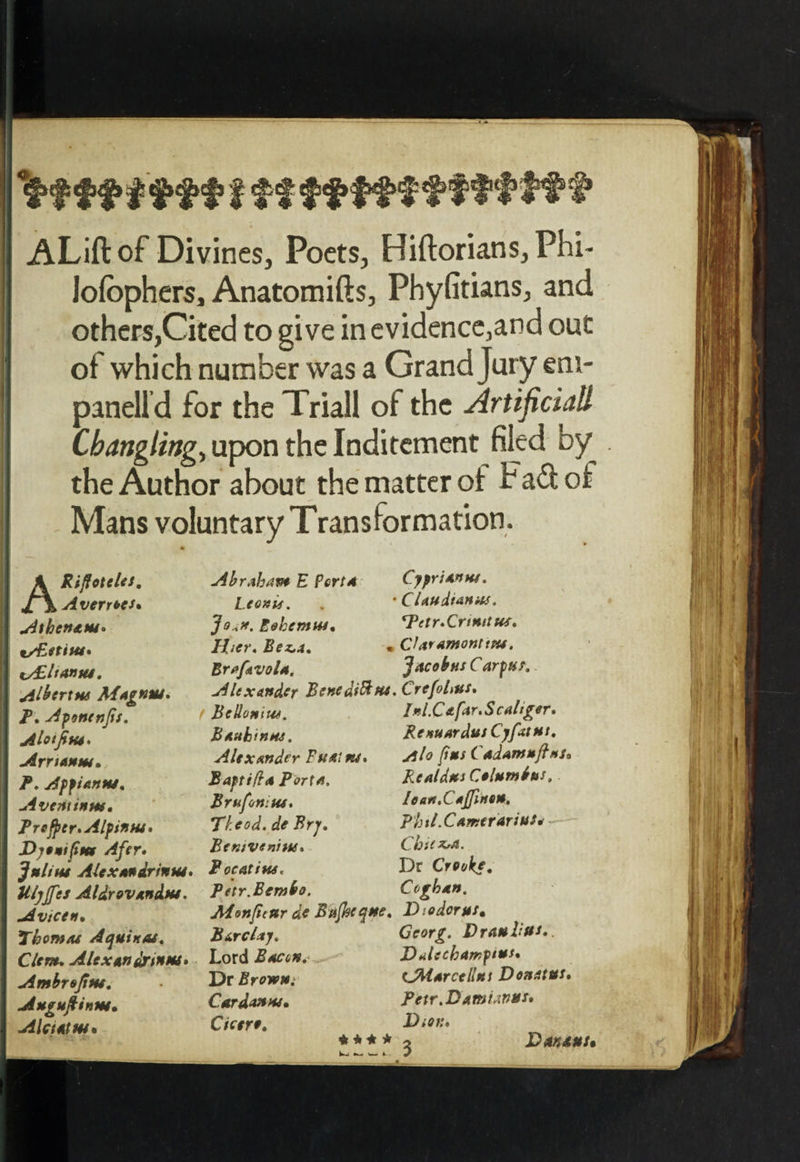 A List of Divines, Poets, Historians, Phi-
losophers, Anatomists, Physitians, and
others, Cited to give in evidence, and out
of which number was a Grand Jury em-
panell'd for the Triall of the Artificiall
Changling, upon the Inditement filed by
the Author about the matter of Fact of
Mans voluntary Transformation.
ARistoteles.
Averroes.
Athenæus.
Ætius.
Ælianus.
Albertus Magnus.
P. Aponensis.
Aloisius.
Arrianus.
P. Appianus.
Aventinus.
Prosper. Alpinus.
Dyonisius Afer.
Julius Alexandrinus.
Ulysses Aldrovandus.
Avicen.
Thomas Aquinas.
Clem. Alexandrinus.
Ambrosius.
Augustinus.
Alciatus.
Abraham E Porta
Leonis.
Joan. Bohemus.
Hier. Beza.
Brasavola.
Alexander Benedictus.
Bellonius.
Bauhinus.
Alexander
Baptista Porta.
Brusonius.
Theod. de Bry.
Benivenius.
Bocatius.
Petr. Bembo.
Monsieur de Busheque.
Barclay.
Lord Bacon.
Dr Brown.
Cardanus.
Cicero.
Cyprianus.
Claudianus.
Petr. Crinitus.
Claramontius.
Jacobus Carpus.
Cresolius.
Jul. Cæsar. Scaliger.
Renuardus Cysatus.
Alosius Cadamustus.
Realdus Columbus.
Ioan. Cassinon.
Phil. Camerarius.
Chieza.
Dr Crooke.
Coghan.
Diodorus.
Georg. Draulius.
Dalechampius.
Marcellus Donatus.
Petr. Damianus.
Dion.
**** 3
Danæus.